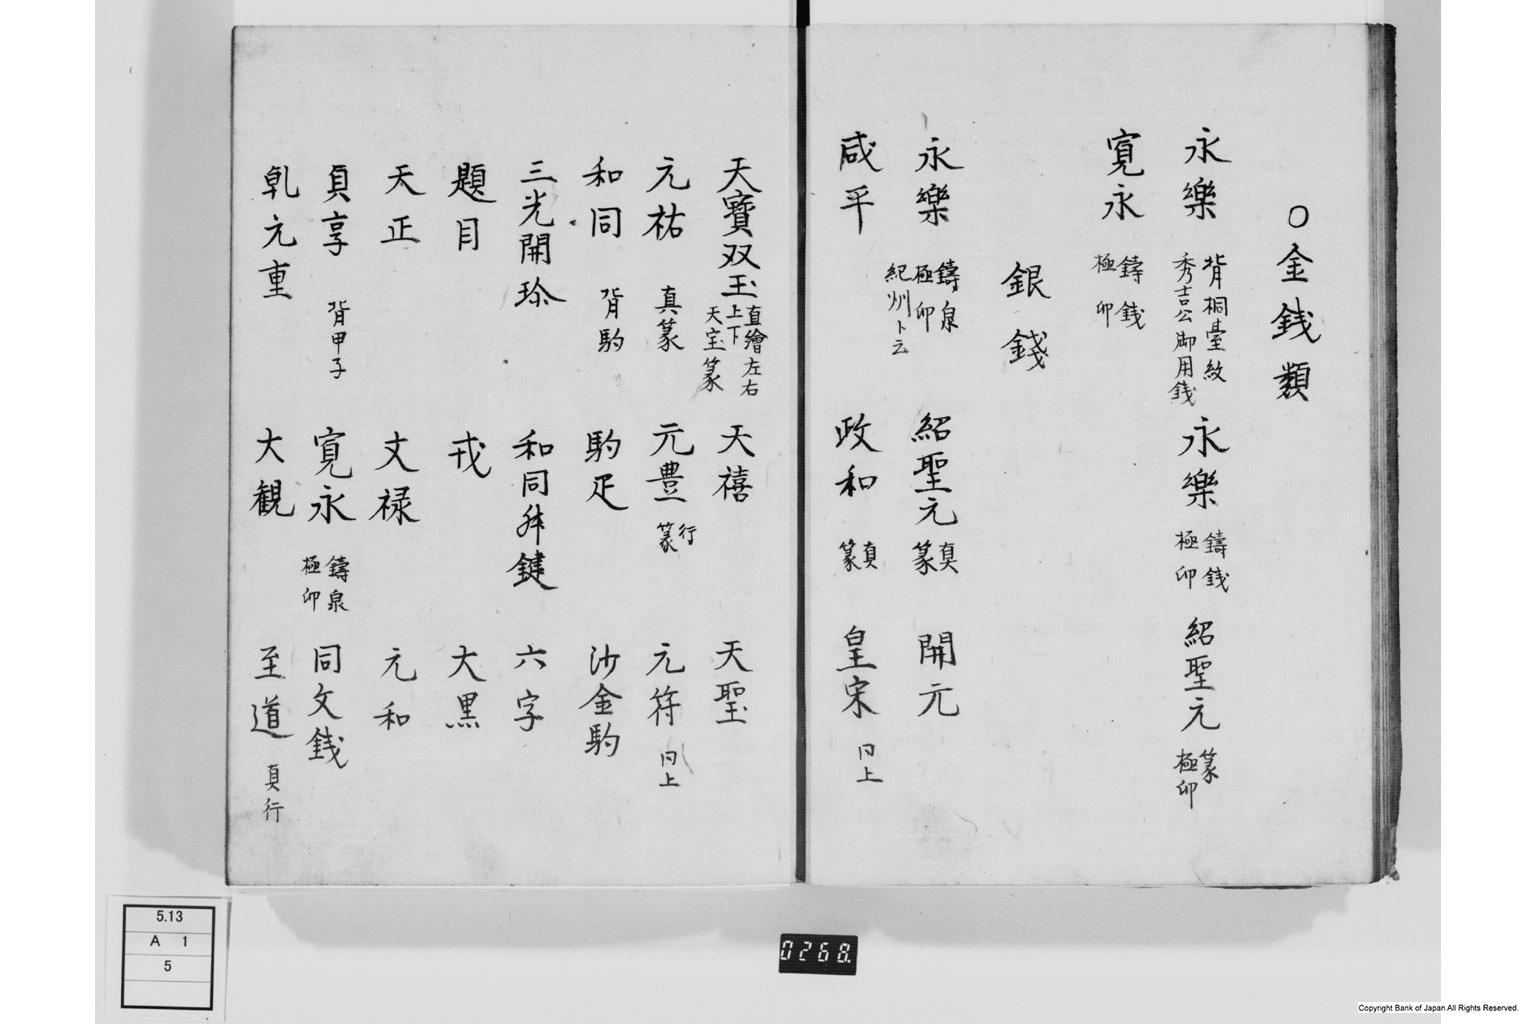 ○金銭類
永樂 背桐臺紋 秀吉公御用銭 永樂 鋳銭 極印 紹聖元 篆 極印
寛永 鋳銭 極印
銀錢
永樂 鋳泉 極印 紀州ト云 紹聖元 真篆 開元
咸平 政和 真篆 皇宋 同上
天寶双玉 直繪左右 上下 天宝篆 天禧 天聖
元祐 真篆 元豊 行篆 元符 同上
和同 背駒 駒疋 沙金駒
三光開珎 和同舛鍵 六字
題目 戎 大黒
天正 文禄 元和
貞享 背甲子 寛永 鋳泉 極印 同文銭
乹元重 大観 至道 真行
5.13
A 1
5
0268.
Copyright Bank of Japan All Rights Reserved.